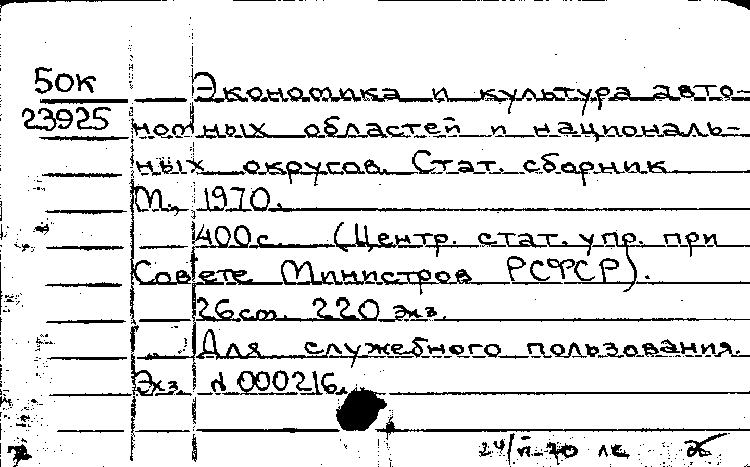 50к
23925
Экономика и культура авто-
номных областей и националь-
ных округов. Стат. сборник.
М., 1970.
400с. (Центр. стат. упр. при
Совете Министров РСФСР).
26см. 220 экз.
Для служебного пользования.
Экз. N 000216.